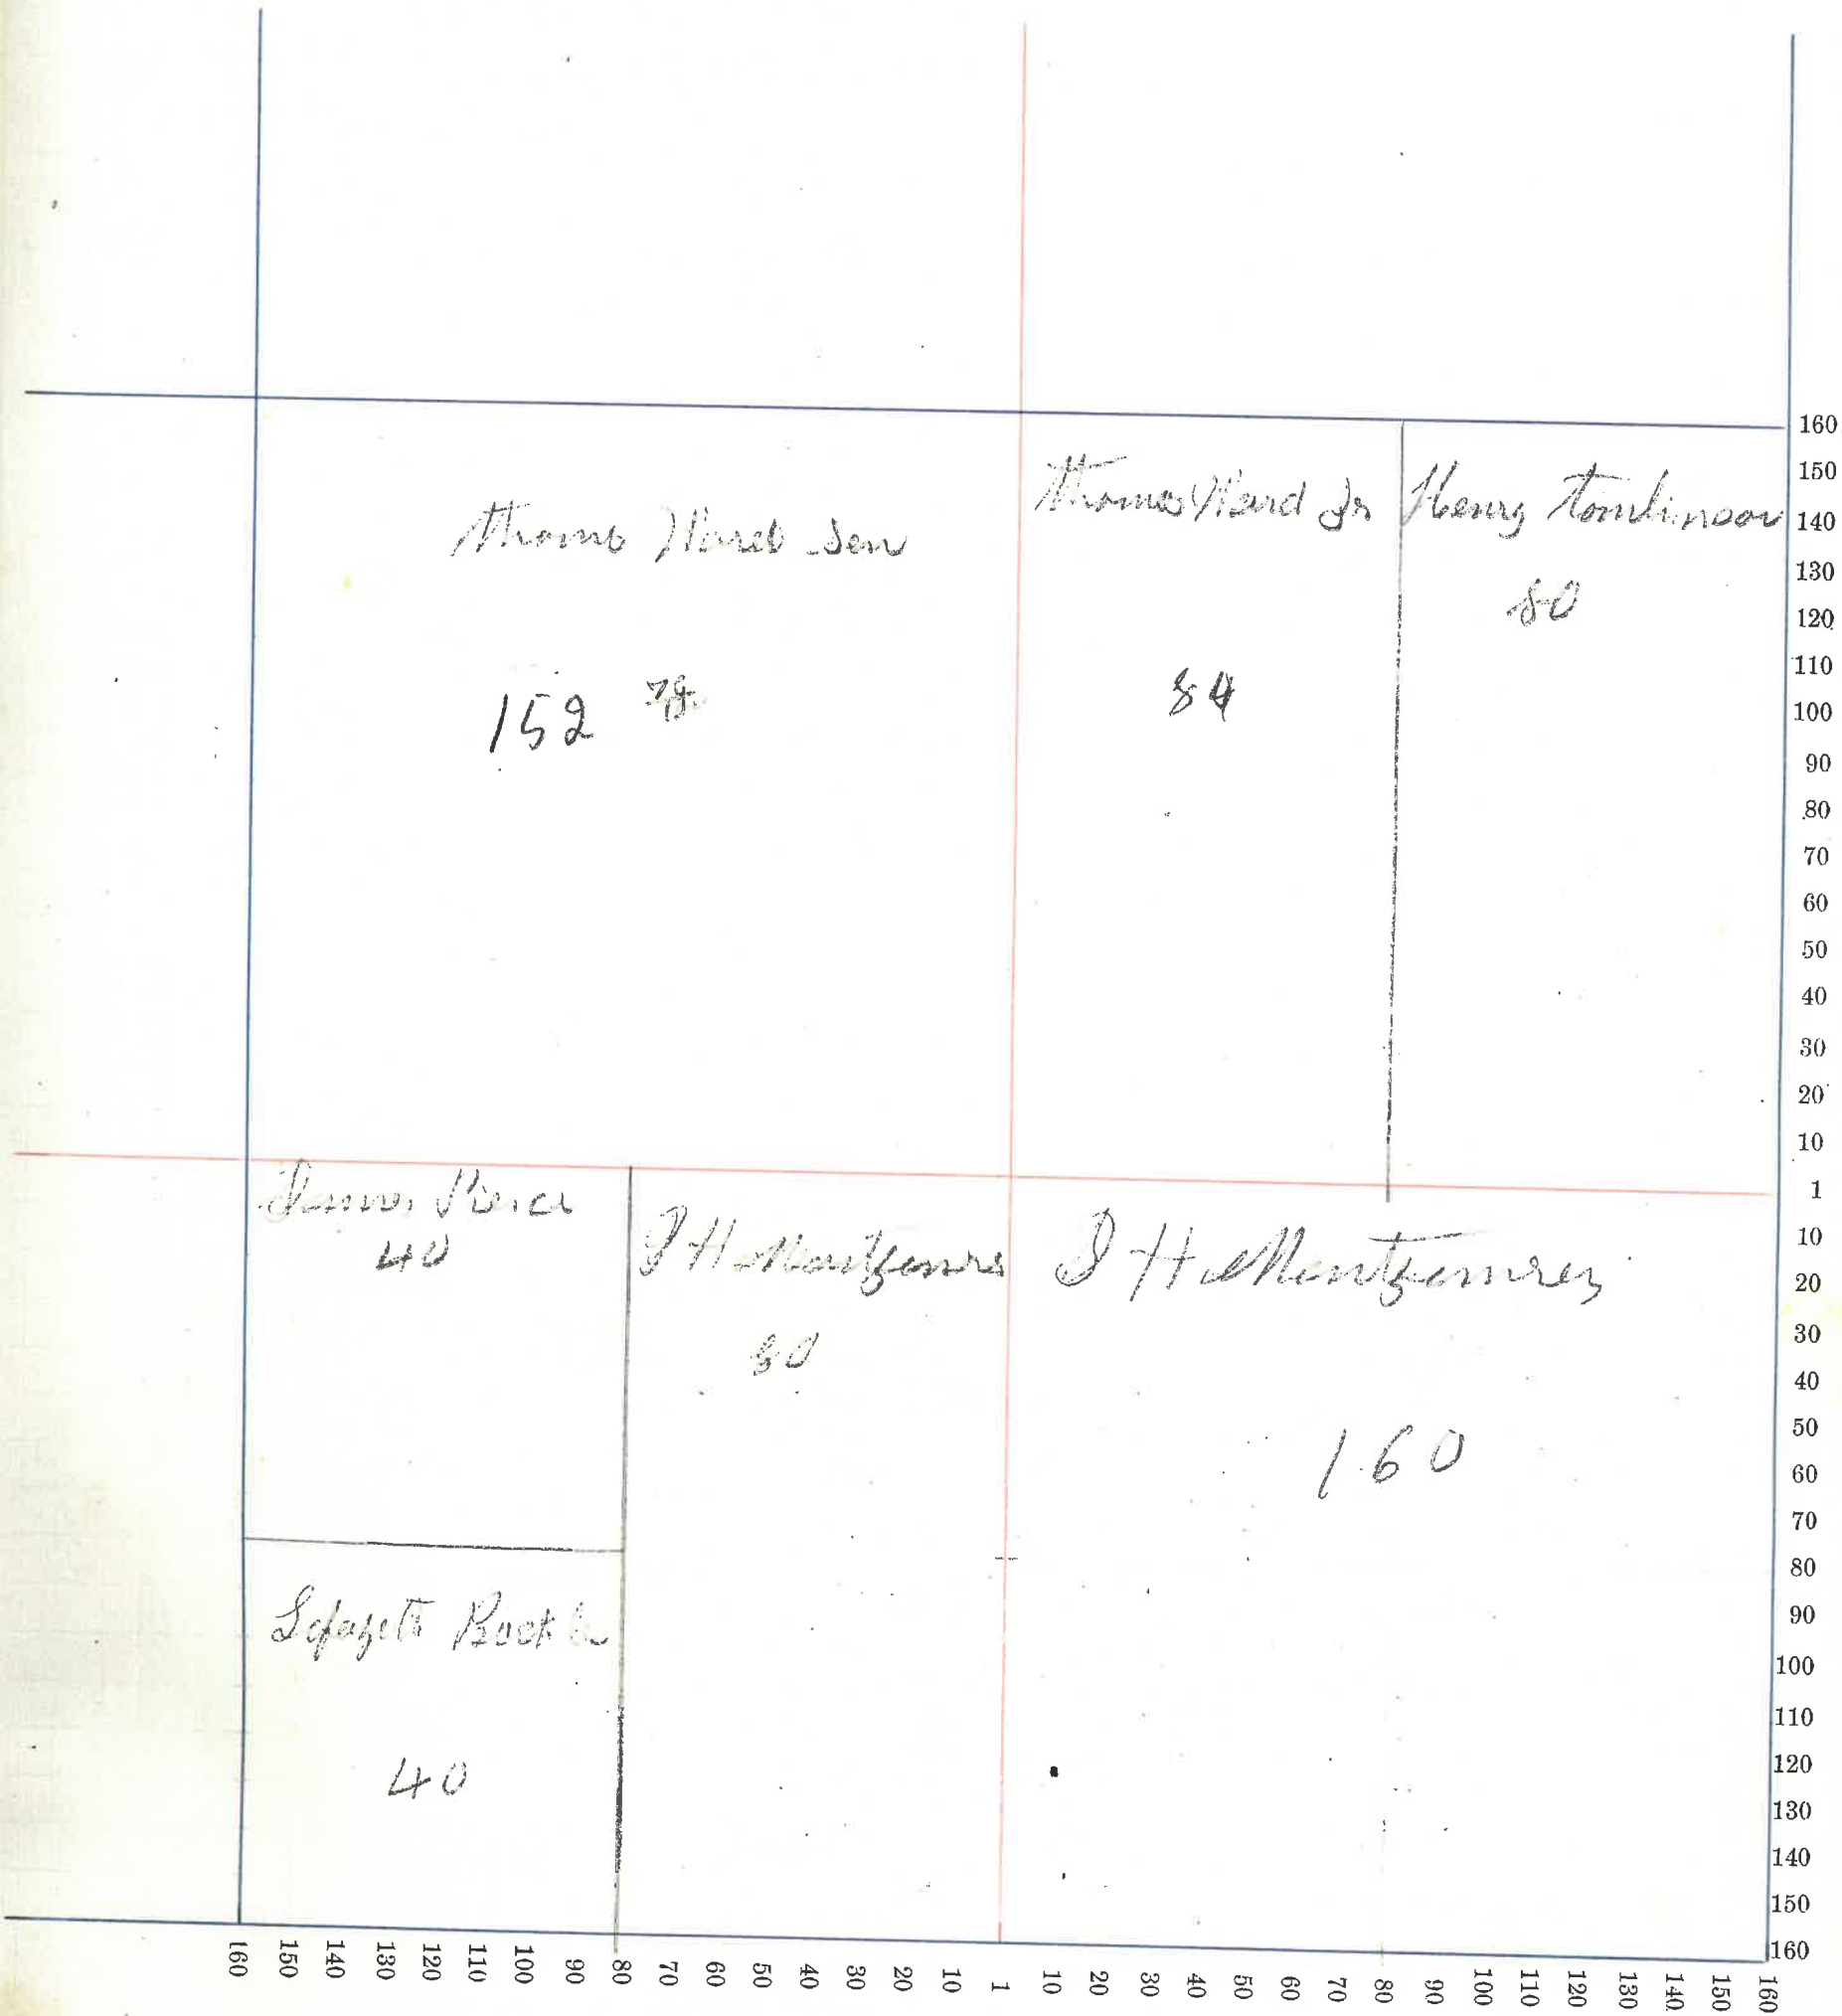 Thomas Ward Sen
152 78
Thomas Ward Jr
84
Henry Tomlinson
80
40
I H Montgomre
80
I H Montgemrey
160
Lafayett
40
160
150
140
130
120
110
100
90
80
70
60
50
40
30
20
10
1
10
20
30
40
50
60
70
80
90
100
110
120
130
140
150
160
160 150 140 130 120 110 100 90 80 70 60 50 40 30 20 10 1 10 20 30 40 50 60 70 80 90 100 110 120 130 140 150 160